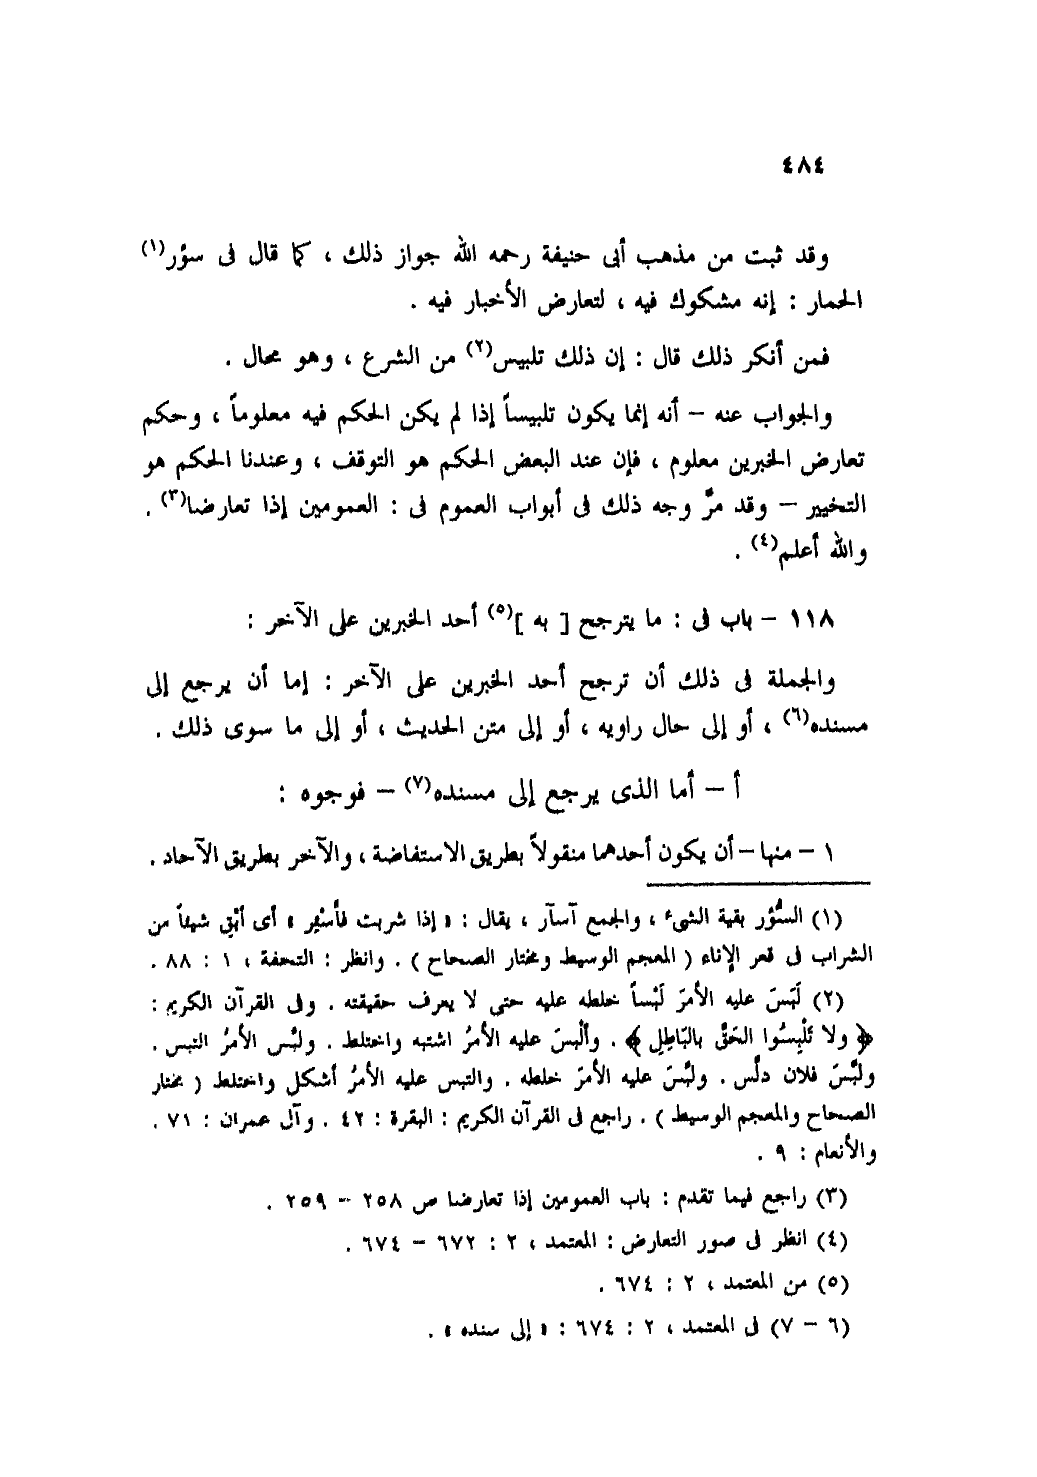 ٤٨٤
وقد ثبت من مذهب أبى حنيفة رحمه الله جواز ذلك ، كما قال فى سؤر(١)
الحمار : إنه مشكوك فيه ، لتعارض الأخبار فيه .
فمن أنكر ذلك قال : إن ذلك تلبيس(٢) من الشرع ، وهو محال .
والجواب عنه – أنه إنما يكون تلبيساً إذا لم يكن الحكم فيه معلوماً ، وحكم
تعارض الخبرين معلوم ، فإن عند البعض الحكم هو التوقف ، وعندنا الحكم هو
التخيير – وقد مرَّ وجه ذلك فى أبواب العموم فى : العمومين إذا تعارضا(٣) .
والله أعلم(٤) .
١١٨ – باب فى : ما يترجح [ به ](٥) أحد الخبرين على الآخر :
والجملة فى ذلك أن ترجح أحد الخبرين على الآخر : إما أن يرجع إلى
مسنده(٦) ، أو إلى حال راويه ، أو إلى متن الحديث ، أو إلى ما سوى ذلك .
أ – أما الذى يرجع إلى مسنده(٧) – فوجوه :
١ – منها – أن يكون أحدهما منقولاً بطريق الاستفاضة ، والآخر بطريق الآحاد .
(١) السُّؤر بقية الشىء ، والجمع آسآر ، يقال : « إذا شربت فأسْئِر » أى أبْقِ شيئاً من
الشراب فى قعر الإناء ( المعجم الوسيط ومختار الصحاح ) . وانظر : التحفة ، ١ : ٨٨ .
(٢) لَبَسَ عليه الأمرَ لَبْساً خلطه عليه حتى لا يعرف حقيقته . وفى القرآن الكريم :
﴿ ولا تَلْبِسُوا الحَقَّ بالبَاطِلِ ﴾ . وألْبسَ عليه الأمرُ اشتبه واختلط . ولبَّس الأمرُ التبس .
ولبَّسَ فلان دلَّس . ولبَّسَ عليه الأمرَ خلطه . والتبس عليه الأمرُ أشكل واختلط ( مختار
الصحاح والمعجم الوسيط ) . راجع فى القرآن الكريم : البقرة : ٤٢ . وآل عمران : ٧١ .
والأنعام : ٩ .
(٣) راجع فيما تقدم : باب العمومين إذا تعارضا ص ٢٥٨ – ٢٥٩ .
(٤) انظر فى صور التعارض : المعتمد ، ٢ : ٦٧٢ – ٦٧٤ .
(٥) من المعتمد ، ٢ : ٦٧٤ .
(٦ – ٧) فى المعتمد ، ٢ : ٦٧٤ : « إلى سنده » .